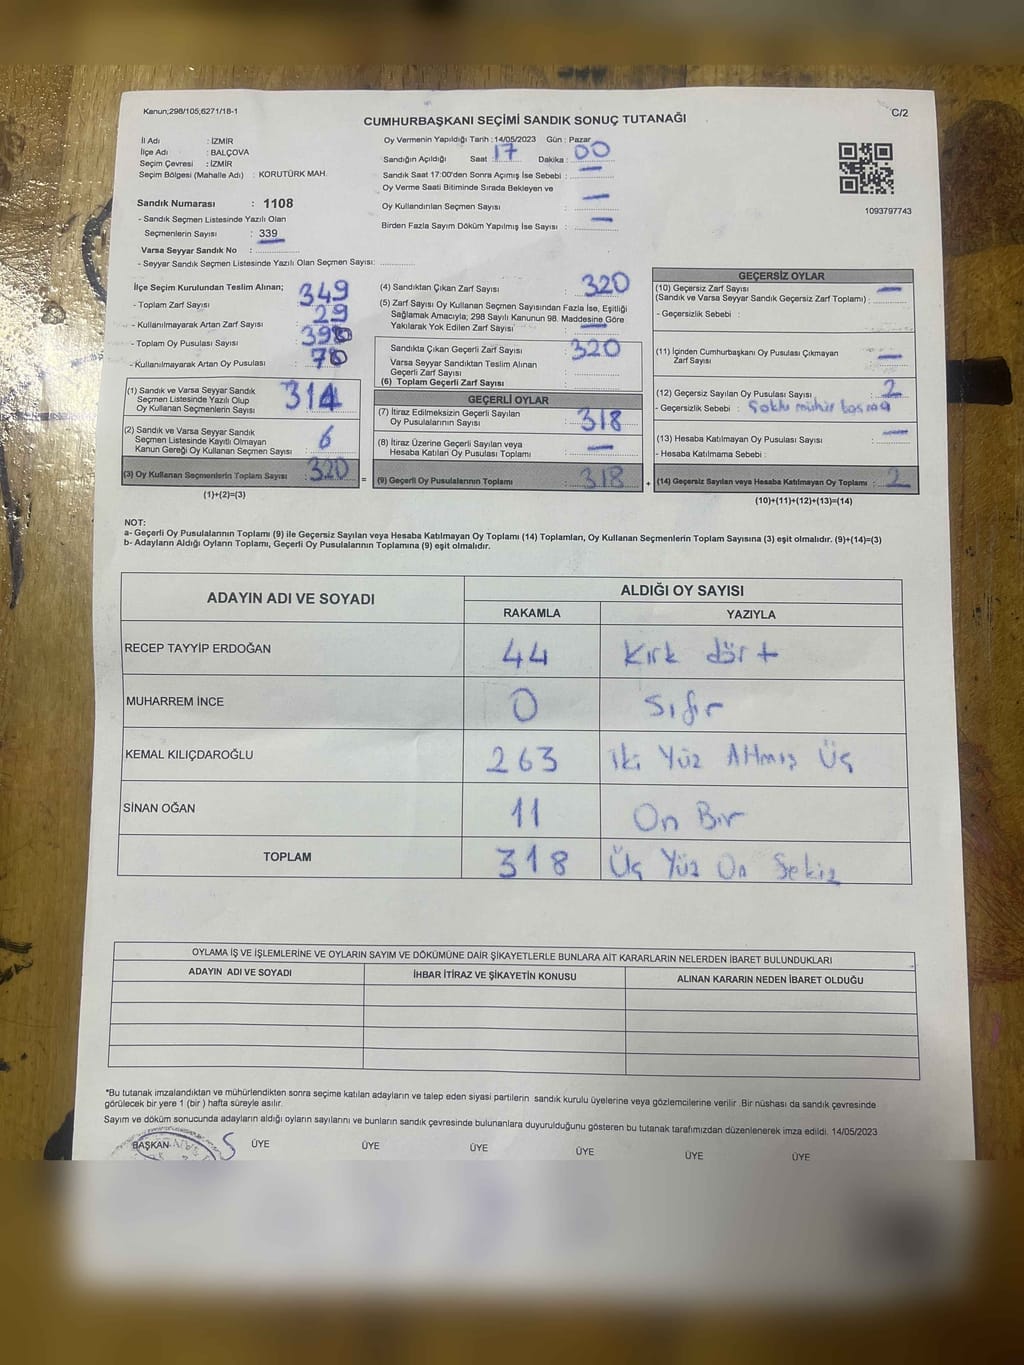 Kanun;298/105,6271/18-1
C/2
CUMHURBAŞKANI SEÇİMİ SANDIK SONUÇ TUTANAĞI
İl Adı : İZMİR
İlçe Adı : BALÇOVA
Seçim Çevresi : İZMİR
Seçim Bölgesi (Mahalle Adı) : KORUTÜRK MAH.
Sandık Numarası : 1108
- Sandık Seçmen Listesinde Yazılı Olan
Seçmenlerin Sayısı : 339
Varsa Seyyar Sandık No :
- Seyyar Sandık Seçmen Listesinde Yazılı Olan Seçmen Sayısı:
Oy Vermenin Yapıldığı Tarih : 14/05/2023 Gün : Pazar
Sandığın Açıldığı Saat : 17 Dakika : 00
Sandık Saat 17:00'den Sonra Açımış İse Sebebi : —
Oy Verme Saati Bitiminde Sırada Bekleyen ve
Oy Kullandırılan Seçmen Sayısı : —
Birden Fazla Sayım Döküm Yapılmış İse Sayısı : —
1093797743
İlçe Seçim Kurulundan Teslim Alınan;
- Toplam Zarf Sayısı : 349
- Kullanılmayarak Artan Zarf Sayısı : 29
- Toplam Oy Pusulası Sayısı
- Kullanılmayarak Artan Oy Pusulası
(1) Sandık ve Varsa Seyyar Sandık
Seçmen Listesinde Yazılı Olup
Oy Kullanan Seçmenlerin Sayısı : 314
(2) Sandık ve Varsa Seyyar Sandık
Seçmen Listesinde Kayıtlı Olmayan
Kanun Gereği Oy Kullanan Seçmen Sayısı : 6
(3) Oy Kullanan Seçmenlerin Toplam Sayısı : 320
(1)+(2)=(3)
(4) Sandıktan Çıkan Zarf Sayısı : 320
(5) Zarf Sayısı Oy Kullanan Seçmen Sayısından Fazla İse, Eşitliği
Sağlamak Amacıyla; 298 Sayılı Kanunun 98. Maddesine Göre
Yakılarak Yok Edilen Zarf Sayısı : —
Sandıkta Çıkan Geçerli Zarf Sayısı : 320
Varsa Seyyar Sandıktan Teslim Alınan
Geçerli Zarf Sayısı :
(6) Toplam Geçerli Zarf Sayısı :
GEÇERLİ OYLAR
(7) İtiraz Edilmeksizin Geçerli Sayılan
Oy Pusulalarının Sayısı : 318
(8) İtiraz Üzerine Geçerli Sayılan veya
Hesaba Katılan Oy Pusulası Toplamı : —
(9) Geçerli Oy Pusulalarının Toplamı : 318
=
+
GEÇERSİZ OYLAR
(10) Geçersiz Zarf Sayısı : —
(Sandık ve Varsa Seyyar Sandık Geçersiz Zarf Toplamı) :
- Geçersizlik Sebebi :
(11) İçinden Cumhurbaşkanı Oy Pusulası Çıkmayan
Zarf Sayısı : —
(12) Geçersiz Sayılan Oy Pusulası Sayısı : 2
- Geçersizlik Sebebi : mühür
(13) Hesaba Katılmayan Oy Pusulası Sayısı : —
- Hesaba Katılmama Sebebi :
(14) Geçersiz Sayılan veya Hesaba Katılmayan Oy Toplamı : 2
(10)+(11)+(12)+(13)=(14)
NOT:
a- Geçerli Oy Pusulalarının Toplamı (9) ile Geçersiz Sayılan veya Hesaba Katılmayan Oy Toplamı (14) Toplamları, Oy Kullanan Seçmenlerin Toplam Sayısına (3) eşit olmalıdır. (9)+(14)=(3)
b- Adayların Aldığı Oyların Toplamı, Geçerli Oy Pusulalarının Toplamına (9) eşit olmalıdır.
ADAYIN ADI VE SOYADI
ALDIĞI OY SAYISI
RAKAMLA YAZIYLA
RECEP TAYYİP ERDOĞAN 44 Kırk dört
MUHARREM İNCE 0 Sıfır
KEMAL KILIÇDAROĞLU 263 iki Yüz Altmış Üç
SİNAN OĞAN 11 On Bir
TOPLAM 318 Üç Yüz On Sekiz
OYLAMA İŞ VE İŞLEMLERİNE VE OYLARIN SAYIM VE DÖKÜMÜNE DAİR ŞİKAYETLERLE BUNLARA AİT KARARLARIN NELERDEN İBARET BULUNDUKLARI
ADAYIN ADI VE SOYADI İHBAR İTİRAZ VE ŞİKAYETİN KONUSU ALINAN KARARIN NEDEN İBARET OLDUĞU
*Bu tutanak imzalandıktan ve mühürlendikten sonra seçime katılan adayların ve talep eden siyasi partilerin sandık kurulu üyelerine veya gözlemcilerine verilir .Bir nüshası da sandık çevresinde
görülecek bir yere 1 (bir ) hafta süreyle asılır.
Sayım ve döküm sonucunda adayların aldığı oyların sayılarını ve bunların sandık çevresinde bulunanlara duyurulduğunu gösteren bu tutanak tarafımızdan düzenlenerek imza edildi. 14/05/2023
BAŞKAN ÜYE ÜYE ÜYE ÜYE ÜYE ÜYE